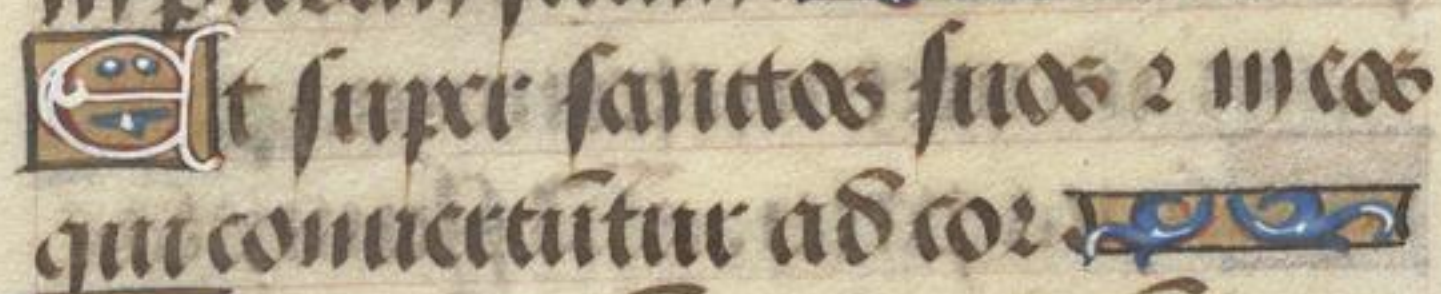 Et super sanctos suos ⁊ in eos
qui conuertūtur ad cor